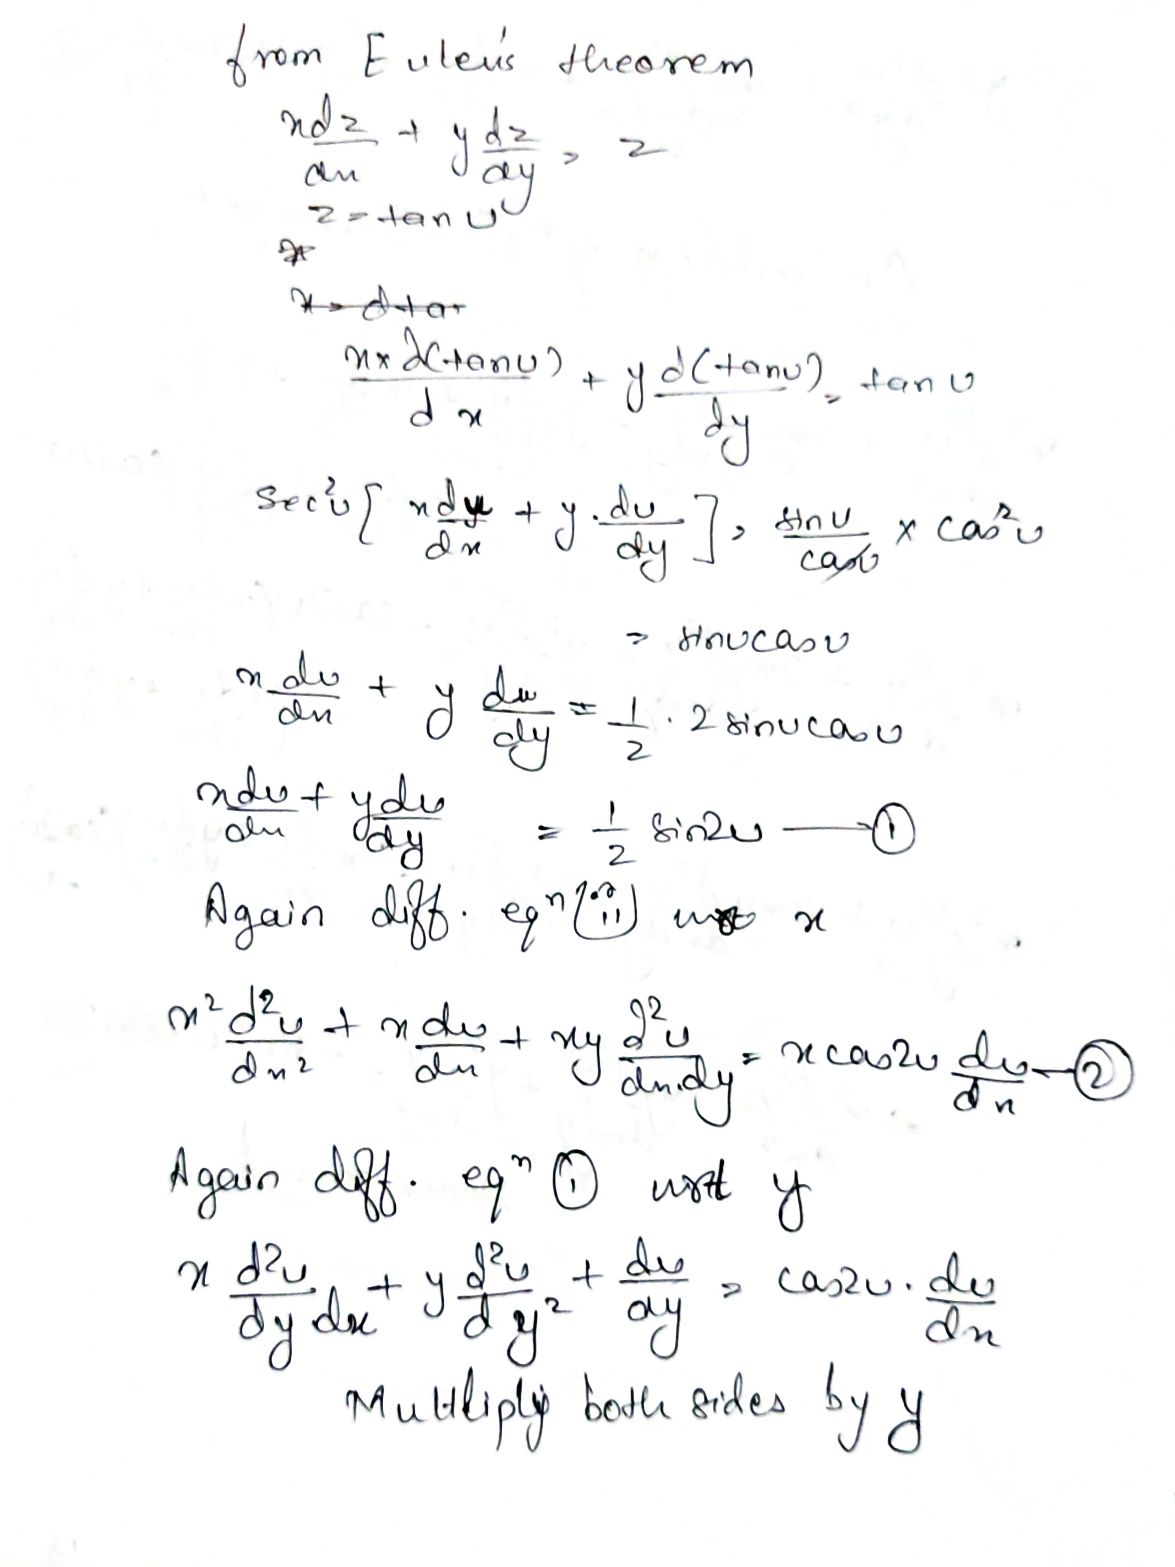 from Euler's theorem
x dz/dx + y dz/dy = z
z = tan u
x
x = d tan
x × ∂(tan u)/dx + y d(tan u)/dy = tan u
sec²u [ x du/dx + y . du/dy ] = sin u/cos u × cos²u
= sin u cos u
x du/dx + y du/dy = 1/2 . 2 sin u cos u
x du/dx + y du/dy = 1/2 sin2u — ①
Again diff. eqⁿ wrt x
x² d²u/dx² + x du/dx + xy ∂²u/dx.dy = x cos2u du/dx — ②
Again diff. eqⁿ ① wrt y
x d²u/dy dx + y d²u/dy² + du/dy = cos2u . du/dx
Multiply both sides by y